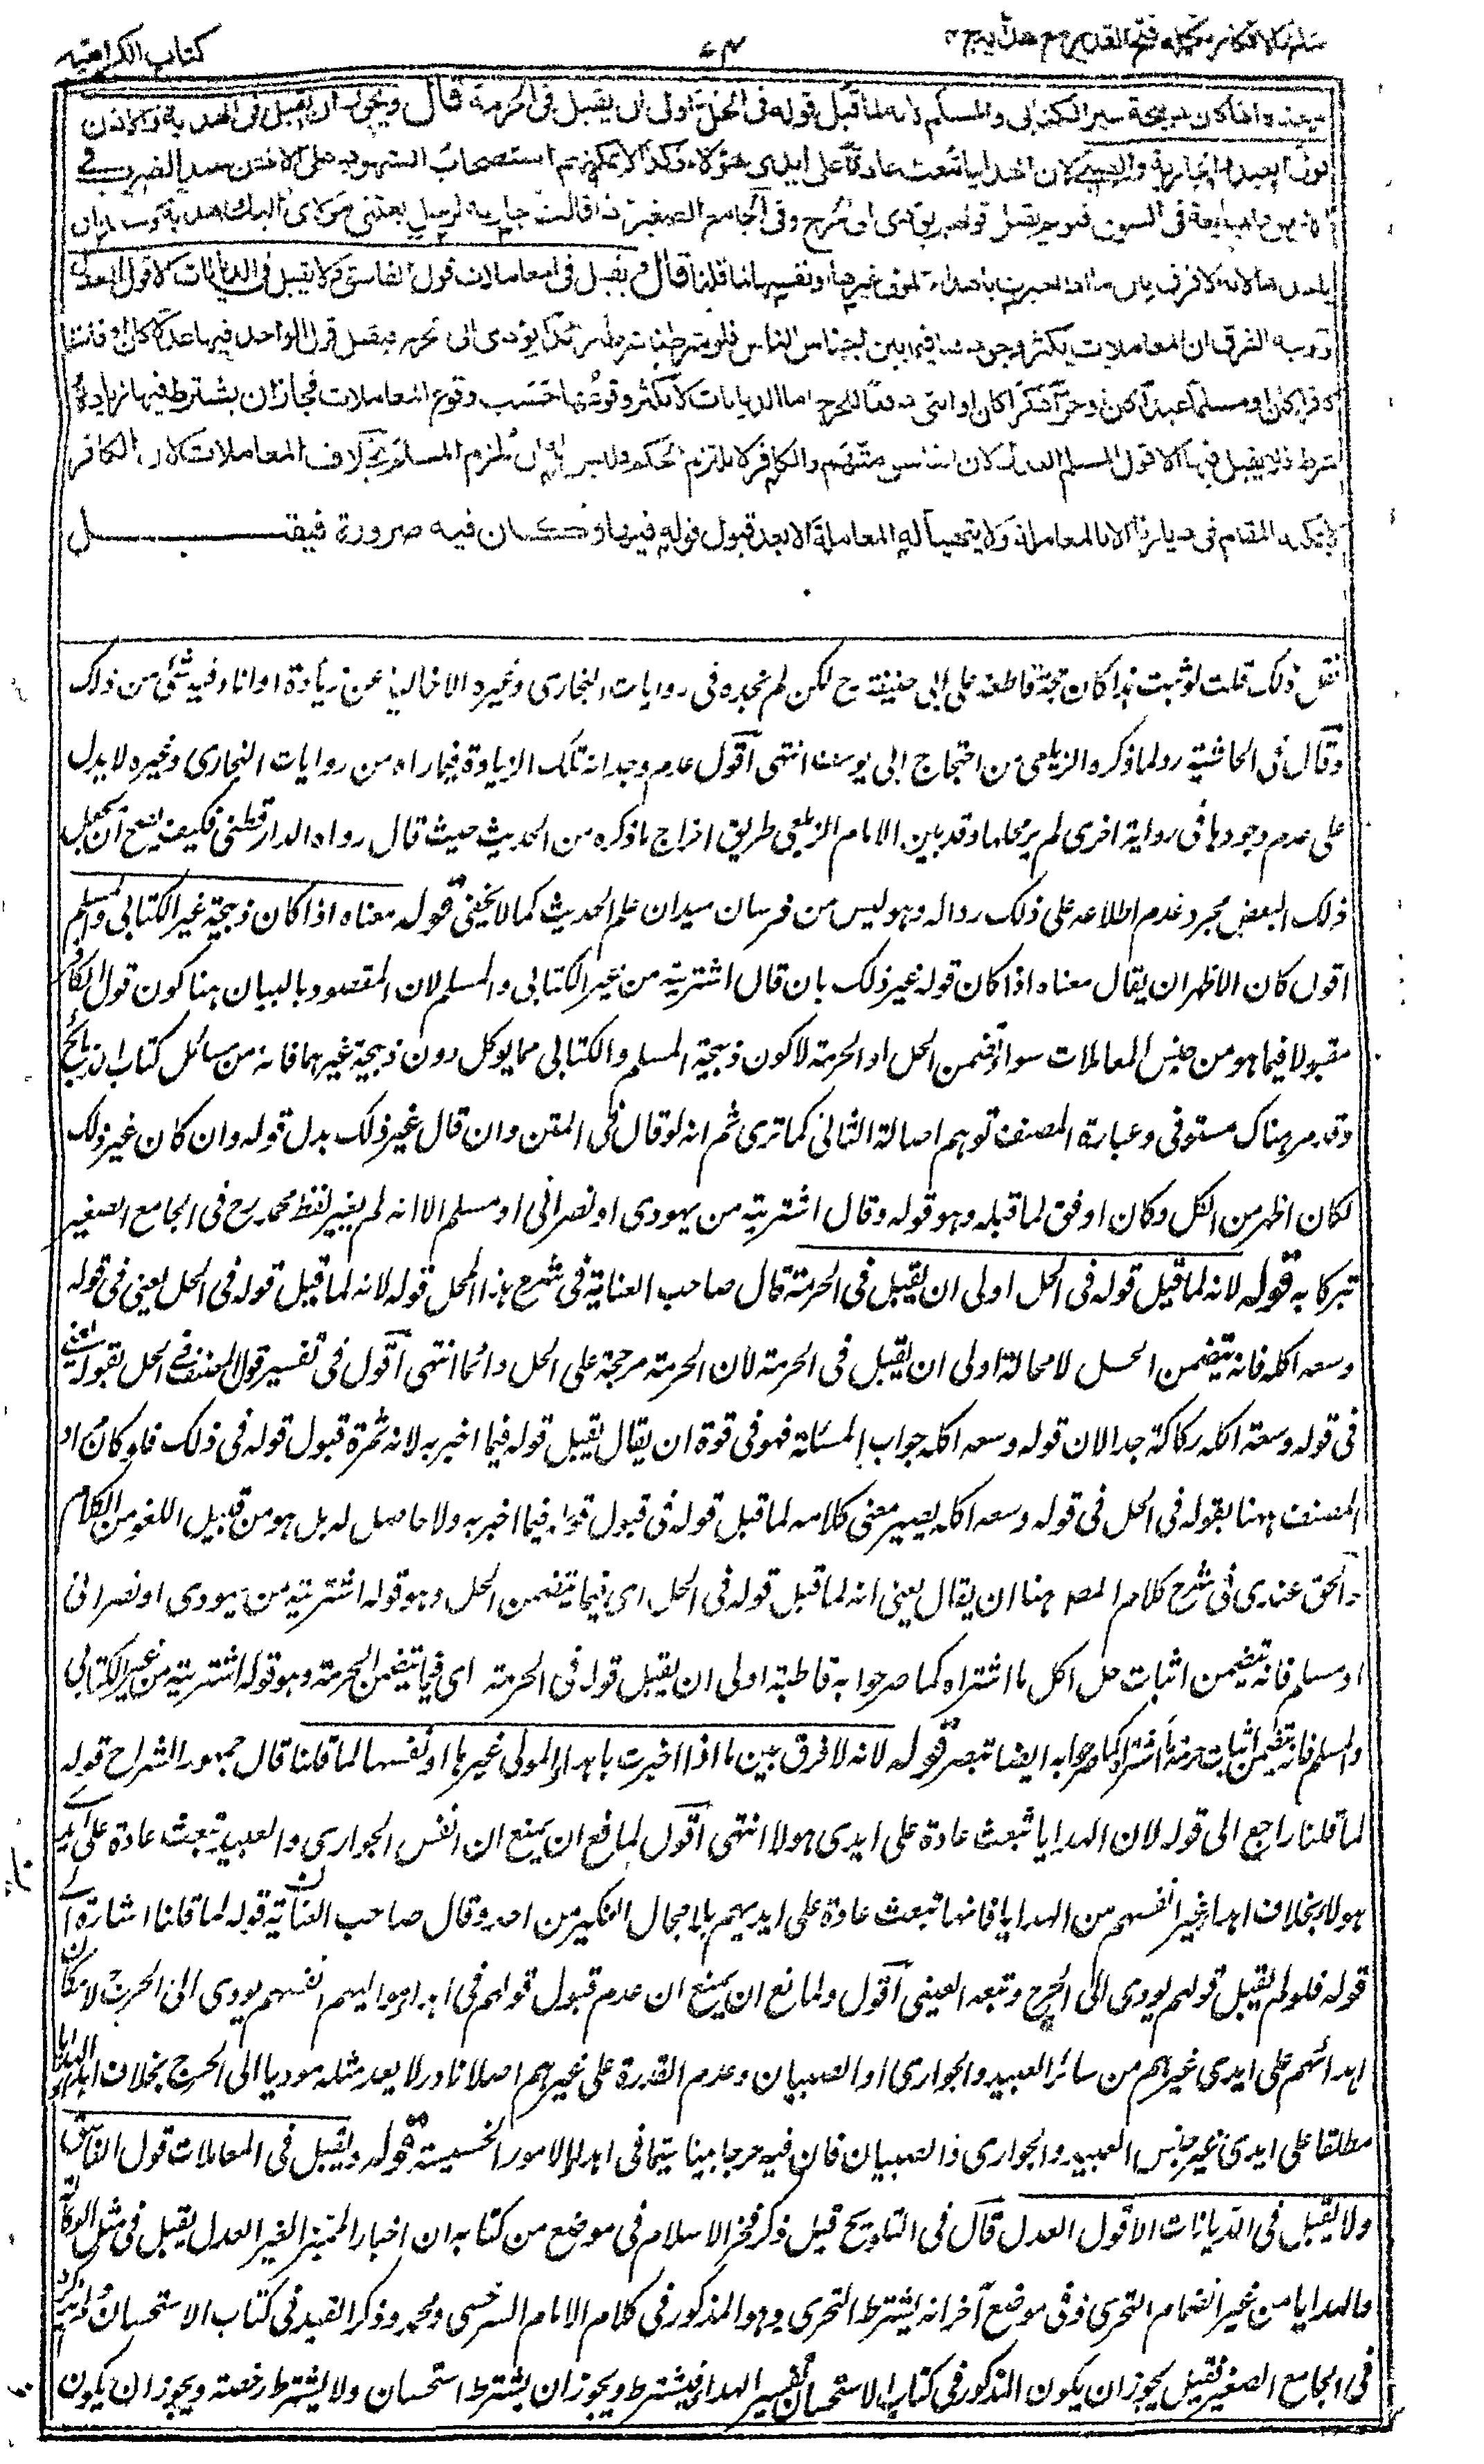 كتاب الكراهية
معناه اذا كان ذبيحة غير الكتابي والمسلم لانه لما قبل قوله في الحل اولى ان يقبل في الحرمة قال ويجوز ان يقبل في الهدية والاذن
قول العبد والجارية والصبي لان الهدايا تبعث عادة على ايدي هؤلاء وكذا لا يمكنهم استصحاب الشهود على الاذن عند الضرب في
الارض والمبايعة في السوق فلو لم يقبل قولهم يؤدي الى الحرج وفي الجامع الصغير اذا قالت جارية لرجل بعثني مولاي اليك هدية وسعه ان
ياخذها لانه لا فرق بين ما اذا اخبرت باهداء المولى غيرها او نفسها لما قلنا قال ويقبل في المعاملات قول الفاسق ولا يقبل في الديانات الا قول العدل
ووجه الفرق ان المعاملات يكثر وجودها فيما بين اجناس الناس فلو شرطنا شرطا زائدا يؤدي الى الحرج فيقبل قول الواحد فيها عدلا كان او فاسقا
كافرا كان او مسلما عبدا كان او حرا ذكرا كان او انثى دفعا للحرج اما الديانات لا يكثر وقوعها حسب وقوع المعاملات فجاز ان يشترط فيها زيادة
شرط فلا يقبل فيها الا قول المسلم العدل لان الفاسق متهم والكافر لا يلتزم الحكم فليس له ان يلزم المسلم بخلاف المعاملات لان الكافر
لا يمكنه المقام في ديارنا الا بالمعاملة ولا يتهيأ له المعاملة الا بعد قبول قوله فيها فكان فيه ضرورة فيقبل
نقل ذلك قلت لو ثبت هذا كان حجة قاطعة على ابي حنيفة رح لكن لم نجده في روايات البخاري وغيره الا خالية عن زيادة او اناء فيه شئ من ذلك
وقال في الحاشية رد لما ذكره الزيلعي من احتجاج ابي يوسف انتهى اقول عدم وجدانه تلك الزيادة فيما راه من روايات البخاري وغيره لا يدل
على عدم وجودها في رواية اخرى لم ير محلها وقد بين الامام الزيلعي طريق اخراج ما ذكره من الحديث حيث قال رواه الدارقطني فكيف يصح ان يجعل
ذلك البعض مجرد عدم اطلاعه على ذلك ردا له وهو ليس من فرسان ميدان علم الحديث كما لا يخفى قوله معناه اذا كان ذبيحة غير الكتابي والمسلم
اقول كان الاظهر ان يقال معناه اذا كان قوله غير ذلك بان قال اشتريته من غير الكتابي والمسلم لان المقصود بالبيان هنا كون قول الكافر
مقبولا فيما هو من جنس المعاملات سواء تضمن الحل او الحرمة لا كون ذبيحة المسلم والكتابي مما يوكل دون ذبيحة غيرهما فانه من مسائل كتاب الذبائح
وقد مر هناك مستوفى وعبارة المصنف توهم اصالة الثاني كما ترى ثم انه لو قال في المتن وان قال غير ذلك بدل قوله وان كان غير ذلك
لكان اظهر من الكل وكان اوفق لما قبله وهو قوله وقال اشتريته من يهودي او نصراني او مسلم الا انه لم يغير لفظ محمد رح في الجامع الصغير
تبركا به قوله لانه لما قبل قوله في الحل اولى ان يقبل في الحرمة قال صاحب العناية في شرح هذا المحل قوله لانه لما قبل قوله في الحل يعني في قوله
وسعه اكله فانه يتضمن الحل لا محالة اولى ان يقبل في الحرمة لان الحرمة مرجحة على الحل دائما انتهى اقول في تفسير قول المصنف في الحل بقوله اعني
في قوله وسعه اكله ركاكة جدا لان قوله وسعه اكله جواب المسئلة فهو في قوة ان يقال يقبل قوله فيما اخبر به لانه ثمرة قبول قوله في ذلك فلو كان مراد
المصنف ههنا بقوله في الحل في قوله وسعه اكله يصير معنى كلامه لما قبل قوله في قبول قوله فيما اخبر به ولا حاصل له بل هو من قبيل اللغو من الكلام
والحق عندي في شرح كلام المصـ هنا ان يقال يعني انه لما قبل قوله في الحل اي فيما يتضمن الحل وهو قوله اشتريته من يهودي او نصراني
او مسلم فانه يتضمن اثبات حل اكل ما اشتراه كما صرحوا به قاطبة اولى ان يقبل قوله في الحرمة اي فيما يتضمن الحرمة وهو قوله اشتريته من غير الكتابي
والمسلم فانه يتضمن اثبات حرمة ما اشتراه كما صرحوا به ايضا تبصر قوله لانه لا فرق بين ما اذا اخبرت باهداء المولى غيرها او نفسها لما قلنا قال جمهور الشراح قوله
لما قلنا راجع الى قوله لان الهدايا تبعث عادة على ايدي هولا انتهى اقول لمانع ان يمنع ان انفس الجواري والعبيد تبعث عادة على ايدي
هولاء بخلاف اهداء غير انفسهم من الهدايا فانها تبعث عادة على ايديهم بلا مجال النكير من احد وقال صاحب العناية قوله لما قلنا اشارة الى
قوله فلو لم يقبل قولهم يودي الى الحرج وتبعه العيني اقول ولمانع ان يمنع ان عدم قبول قولهم في اهداء مواليهم انفسهم يودي الى الحرج لامكان
اهدائهم على ايدي غيرهم من سائر العبيد والجواري او الصبيان وعدم القدرة على غيرهم اصلا نادر لا يعد مثله موديا الى الحرج بخلاف اهداء الهدايا
مطلقا على ايدي غير جنس العبيد والجواري والصبيان فان فيه حرجا بينا سيما في اهداء الامور الخسيسة قوله ويقبل في المعاملات قول الفاسق
ولا يقبل في الديانات الا قول العدل قال في التلويح قيل ذكر فخر الاسلام في موضع من كتابه ان اخبار المميز الغير العدل يقبل في مثل الوكالة
والهدايا من غير انضمام التحري وفي موضع آخر انه يشترط التحري وهو المذكور في كلام الامام السرخسي ومحمد وذكر القيد في كتاب الاستحسان ولم يذكره
في الجامع الصغير فقيل يجوز ان يكون المذكور في كتاب الاستحسان تفسيرا لهذا فيشترط ويجوز ان يشترط استحسان ولا يشترط رخصة ويجوز ان يكون